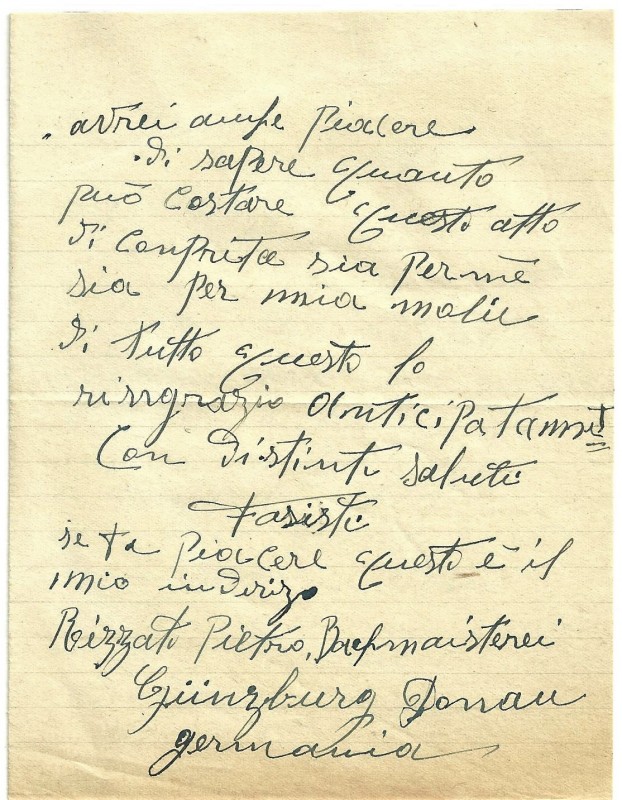 avrei anche piacere
di sapere quanto
può costare questo atto
di comprita sia per mè
sia per mia molie
di tutto questo lo
rinngrazio anticipatamnt
Con distinti saluti
Fasisti
se fa piacere questo è il
mio indirizo
Rizzato Pietro, Bachmaisterei
Günzburg Donau
germania